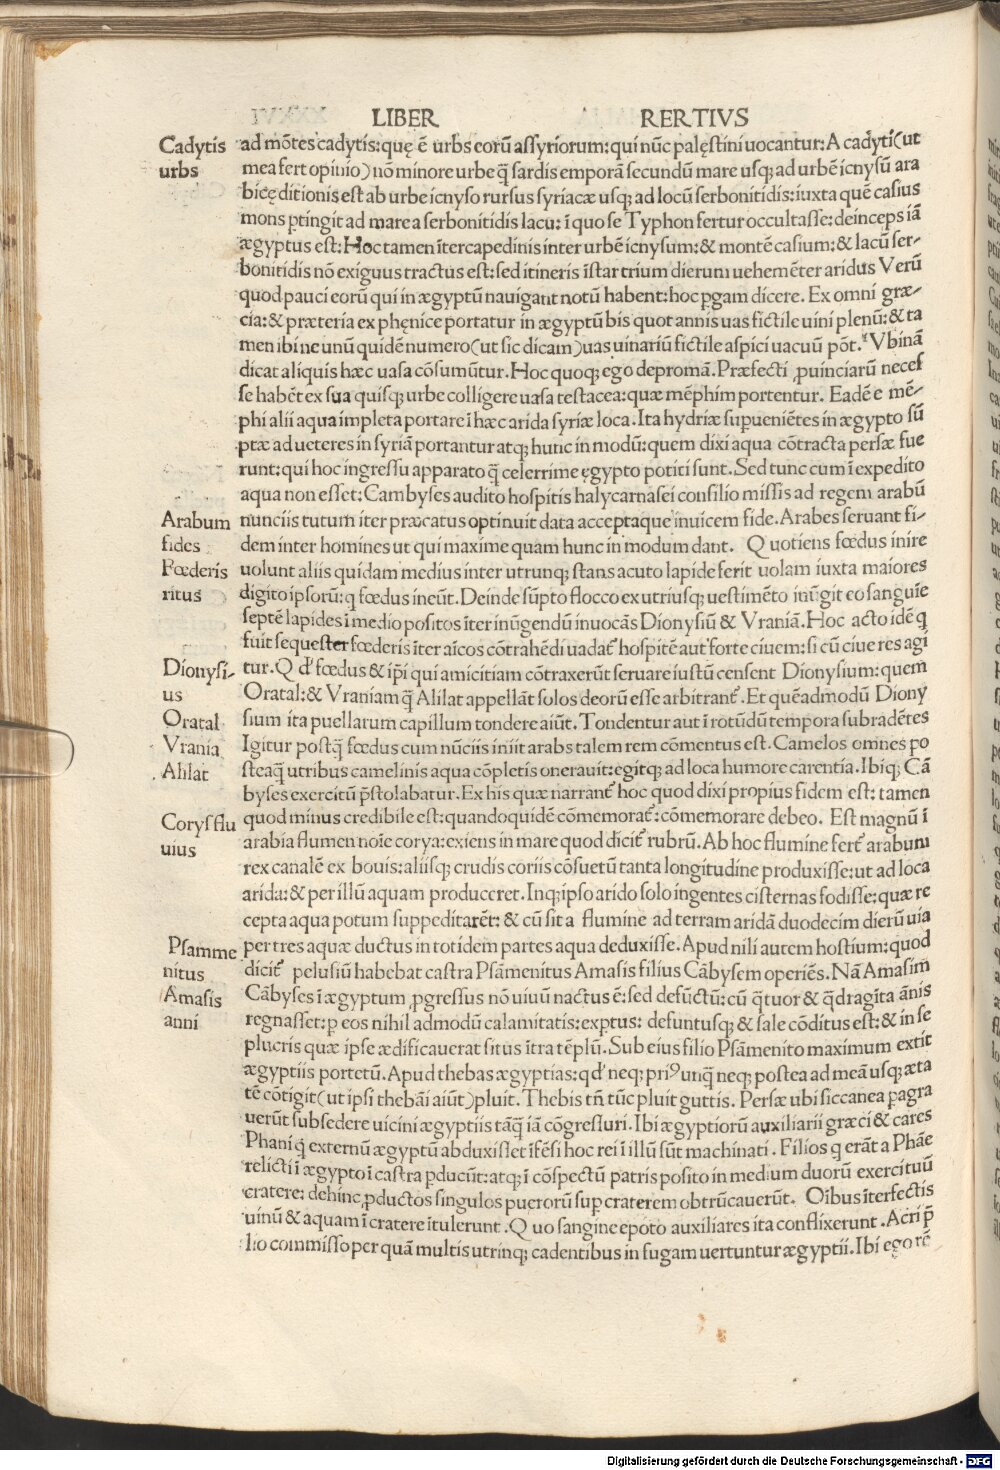 LIBER RERTIVS
Cadytis
urbs
Arabum
fides
Fœderis
ritus
Dionysi-
us
Oratal
Vrania
Alilat
Corys flu
uius
Psamme
nitus
Amasis
anni
ad mōtes cadytis: quę ē urbs eorū assyriorum: qui nūc palęstini uocantur: A cadyti (ut
mea fert opinio) nō minore urbe q̄ sardis emporā secundū mare usq; ad urbē icnysū ara
bicę ditionis est ab urbe icnyso rursus syriacæ usq; ad locū serbonitidis: iuxta quē casius
mons ꝑtingit ad mare a serbonitidis lacu: ī quo se Typhon fertur occultasse: deinceps iā
ægyptus est: Hoc tamen ītercapedinis inter urbē icnysum: & montē casium: & lacū ser-
bonitidis nō exiguus tractus est: sed itineris īstar trium dierum uehemēter aridus Verū
quod pauci eorū qui in ægyptū nauigant notū habent: hoc ꝑgam dicere. Ex omni græ-
cia: & præteria ex phęnice portatur in ægyptū bis quot annis uas fictile uini plenū: & ta
men ibi ne unū quidē numero (ut sic dicam) uas uinariū fictile aspici uacuū pōt. Vbinā
dicat aliquis hæc uasa cōsumūtur. Hoc quoq; ego depromā. Præfecti ꝓuinciarū necef
se habēt ex sua quisq; urbe colligere uasa testacea: quæ mēphim portentur. Eadē e mē-
phi alii aqua impleta portare ī hæc arida syriæ loca. Ita hydriæ supueniētes in ægypto sū
ptæ ad ueteres in syriā portantur atq; hunc in modū: quem dixi aqua cōtracta persæ fue
runt: qui hoc ingressu apparato q̄ celerrime ęgypto potiti sunt. Sed tunc cum ī expedito
aqua non esset: Cambyses audito hospitis halycarnasei consilio missis ad regem arabū
nunciis tutum iter præcatus optinuit data acceptaque inuicem fide. Arabes seruant fi-
dem inter homines ut qui maxime quam hunc in modum dant. Quotiens fœdus inire
uolunt aliis quidam medius inter utrunq; stans acuto lapide ferit uolam iuxta maiores
digito ipsorū: q fœdus ineūt. Deinde sūpto flocco ex utriusq; uestimēto inūgit eo sanguīe
septē lapides ī medio positos īter inūgendū inuocās Dionysiū & Vraniā. Hoc acto idē q
fuit sequester fœderis īter aīcos cōtrahēdi uadat' hospitē aut forte ciuem: si cū ciue res agi
tur. Qd' fœdus & ip̄i qui amicitiam cōtraxerūt seruare iustū censent Dionysium: quem
Oratal: & Vraniam q̄ Alilat appellāt solos deorū esse arbitrant'. Et quēadmodū Diony
sium ita puellarum capillum tondere aiūt. Tondentur aut ī rotūdū tempora subradētes
Igitur postq̄ fœdus cum nūciis iniit arabs talem rem cōmentus est. Camelos omnes po
steaq̄ utribus camelinis aqua cōpletis onerauit: egitq; ad loca humore carentia. Ibiq; Cā
byses exercitū p̄stolabatur. Ex his quæ narrant' hoc quod dixi propius fidem est: tamen
quod minus credibile est: quandoquidē cōmemorat': cōmemorare debeo. Est magnū ī
arabia flumen noīe corya: exiens in mare quod dicit' rubrū. Ab hoc flumine fert' arabum
rex canalē ex bouis: aliisq; crudis coriis cōsuetū tanta longitudine produxisse: ut ad loca
arida: & per illū aquam produceret. Inq; ipso arido solo ingentes cisternas fodisse: quæ re
cepta aqua potum suppeditarēt: & cū sit a flumine ad terram aridā duodecim dierū uia
per tres aquæ ductus in totidem partes aqua deduxisse. Apud nili autem hostium: quod
dicit' pelusiū habebat castra Psāmenitus Amasis filius Cābysem operiēs. Nā Amasim
Cābyses ī ægyptum ꝓgressus nō uiuū nactus ē: sed defūctū: cū q̄tuor & q̄dragīta ānis
regnasset: ꝑ eos nihil admodū calamitatis: exptus: defuntusq; & sale cōditus est: & in se
plucris quæ ipse ædificauerat situs ītra tēplū. Sub eius filio Psāmenito maximum extit
ægyptiis portētū. Apud thebas ægyptias: qd' neq; pri⁹ unq̄ neq; postea ad meā usq; æta
tē cōtigit (ut ipsi thebāi aiūt) pluit. Thebis tn̄ tūc pluit guttis. Persæ ubi siccanea ꝑagra
uerūt subsedere uicini ægyptiis tāq̄ iā cōgressuri. Ibi ægyptiorū auxiliarii græci & cares
Phani q̄ externū ægyptū abduxisset īfēsi hoc rei ī illū sūt machinati. Filios q erāt a Phāe
relicti ī ægypto ī castra ꝓducūt: atq; ī cōspectū patris posito in medium duorū exercituū
cratere: dehinc ꝓductos singulos puerorū suꝑ craterem obtrūcauerūt. Oībus īterfectis
uinū & aquam ī cratere ītulerunt. Quo sangine epoto auxiliares ita conflixerunt. Acri p̄
lio commisso per quā multis utrinq; cadentibus in fugam uertuntur ægyptii. Ibi ego rē
Digitalisierung gefördert durch die Deutsche Forschungsgemeinschaft - DFG